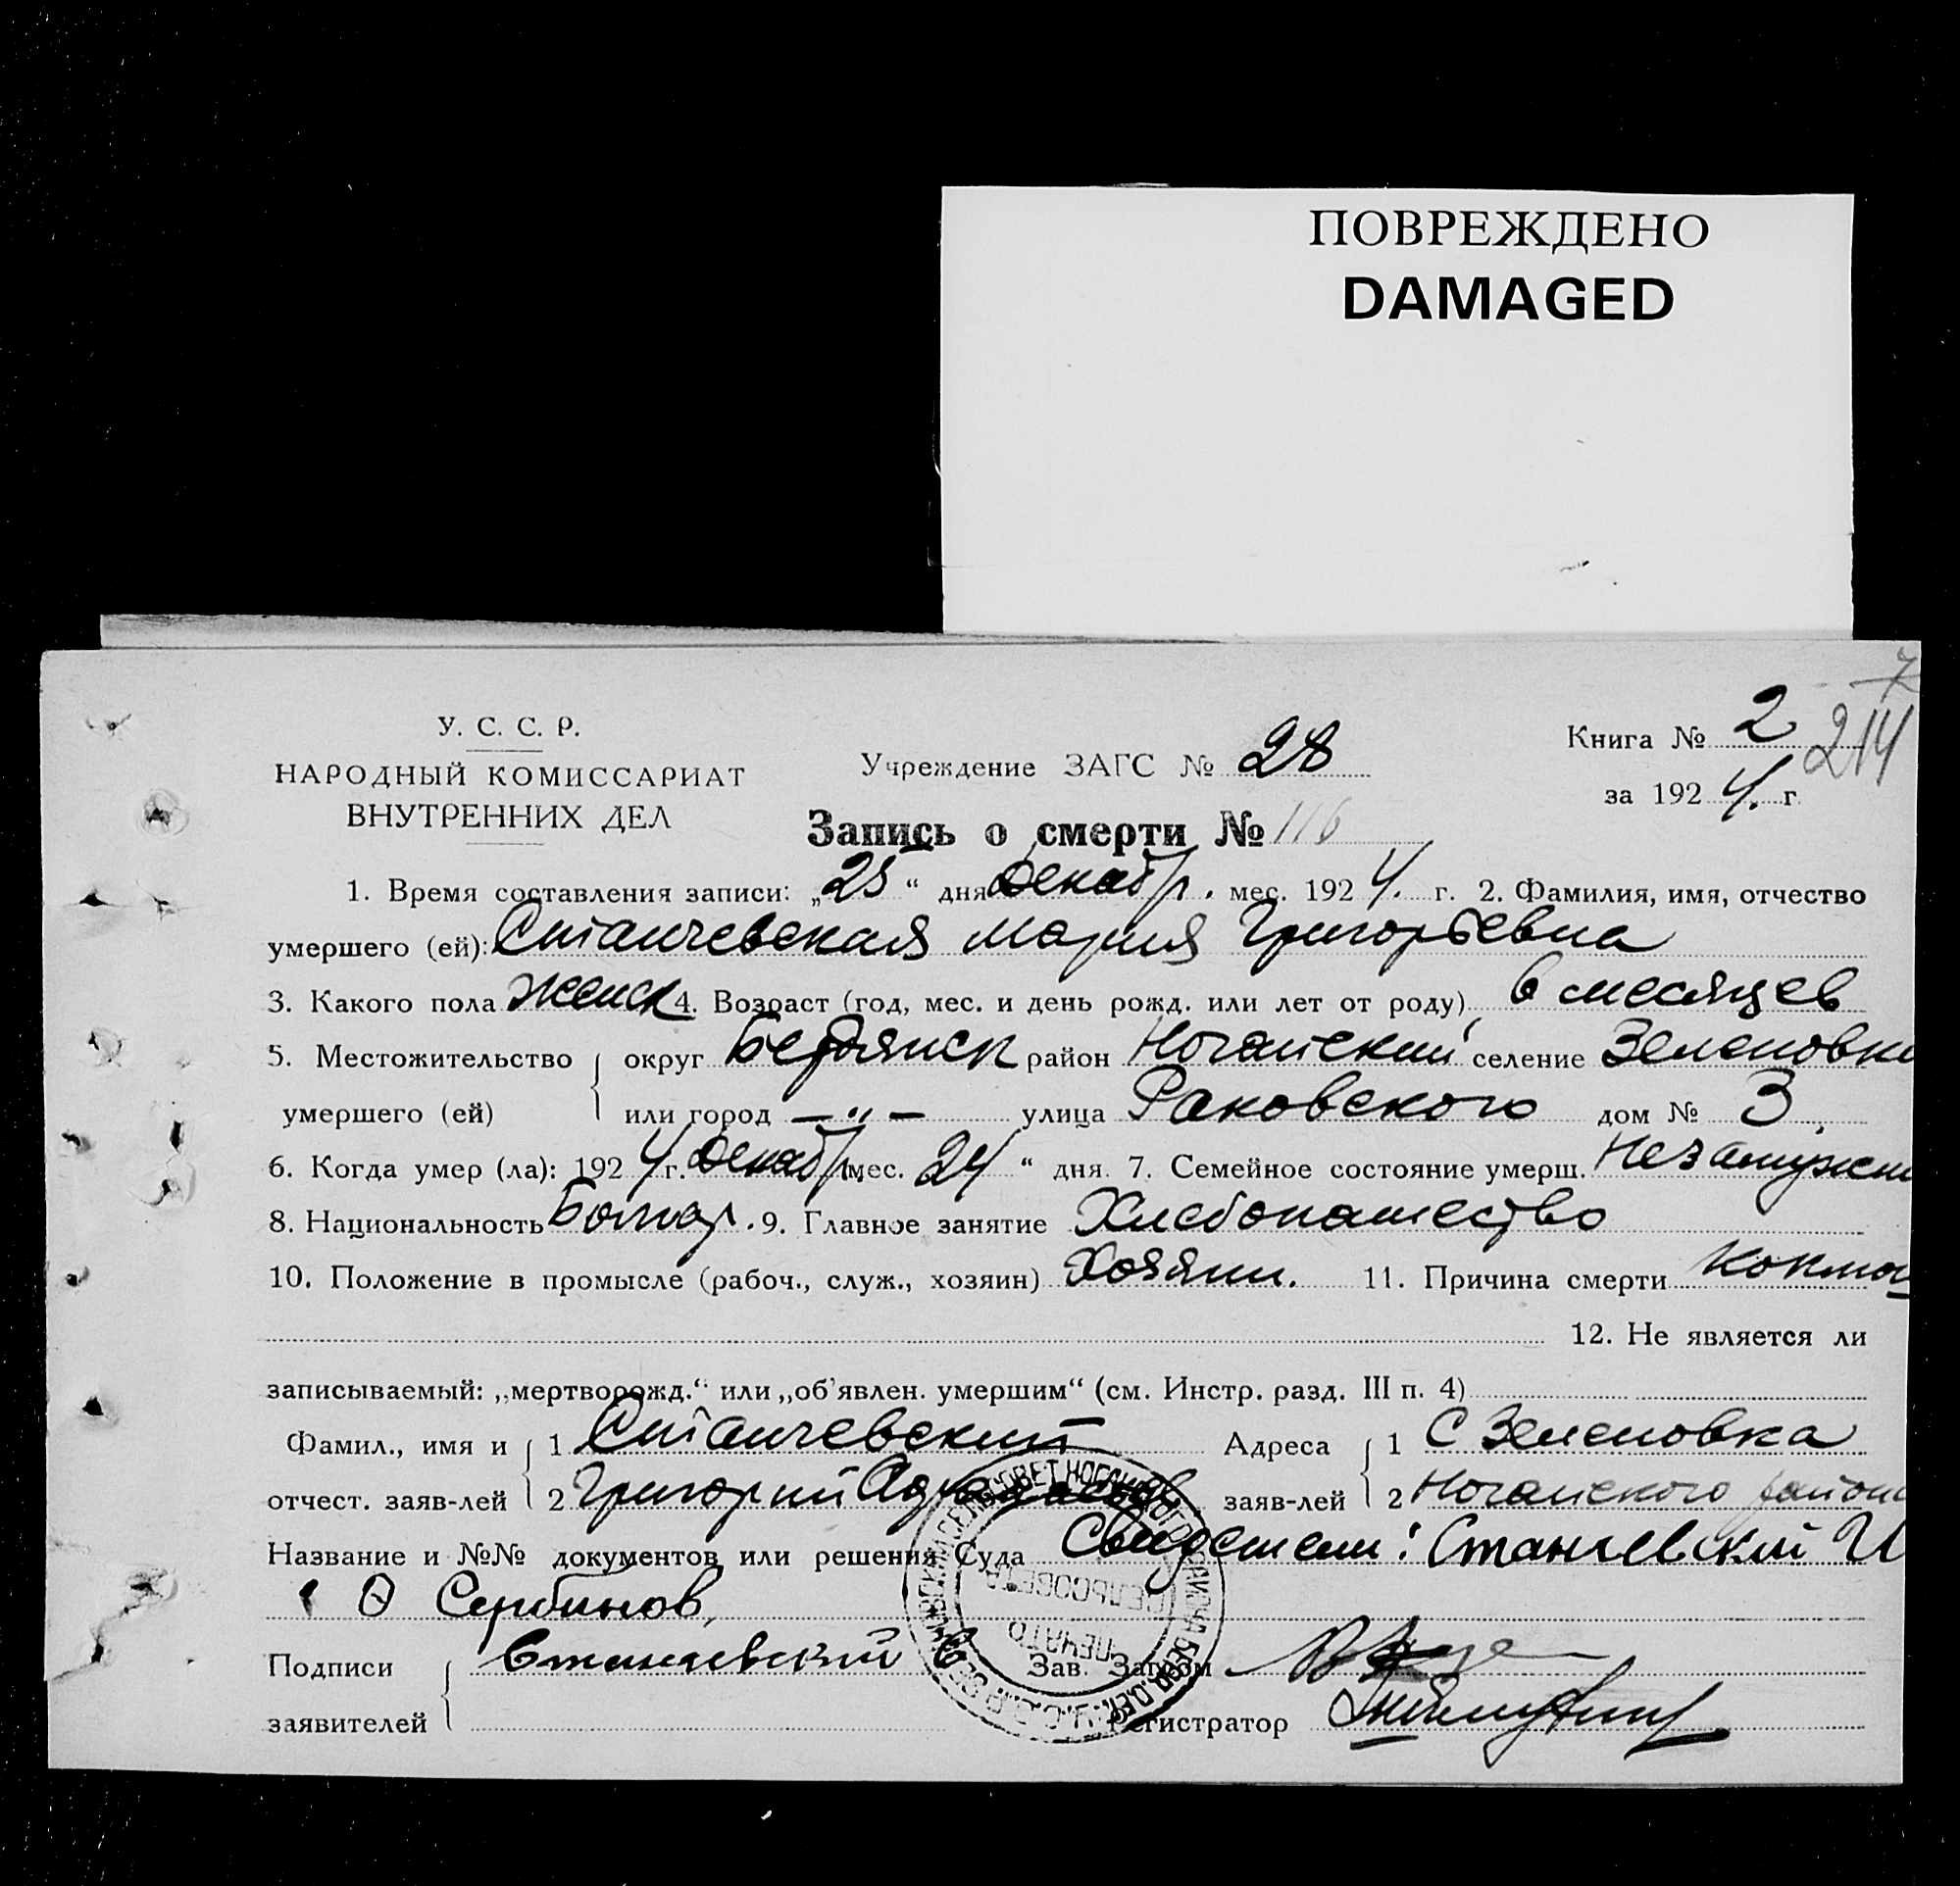 ПОВРЕЖДЕНО
DAMAGED
7
214
У. С. С. Р.
НАРОДНЫЙ КОМИССАРИАТ
ВНУТРЕННИХ ДЕЛ
Учреждение ЗАГС № 28
Книга № 2
за 1924. г.
Запись о смерти № 116
1. Время составления записи: „25“ дня Декабр. мес. 1924. г. 2. Фамилия, имя, отчество
умершего (ей): Станчевская Мария Григорьевна
3. Какого пола женск 4. Возраст (год, мес. и день рожд. или лет от роду) 6 месяцев
5. Местожительство округ Бердянск район Ногайский селение Зеленовки
умершего (ей) или город — „ — улица Раковского дом № 3
6. Когда умер (ла): 1924 г. Декабр. мес. 24 “ дня. 7. Семейное состояние умерш. Незамужн
8. Национальность Болгар. 9. Главное занятие Хлебопашество
10. Положение в промысле (рабоч., служ., хозяин) Хозяин. 11. Причина смерти Коклюш
12. Не является ли
записываемый: „мертворожд.“ или „об'явлен. умершим“ (см. Инстр. разд. III п. 4)
Фамил., имя и 1 Станчевский Адреса 1 С Зеленовка
отчест. заяв-лей 2 Григорий заяв-лей 2 Ногайского района
Название и №№ документов или решения Суда Свидетели: Станчевский И
Θ Сербинов,
Подписи Станчевский Зав. Загсом
заявителей Регистратор